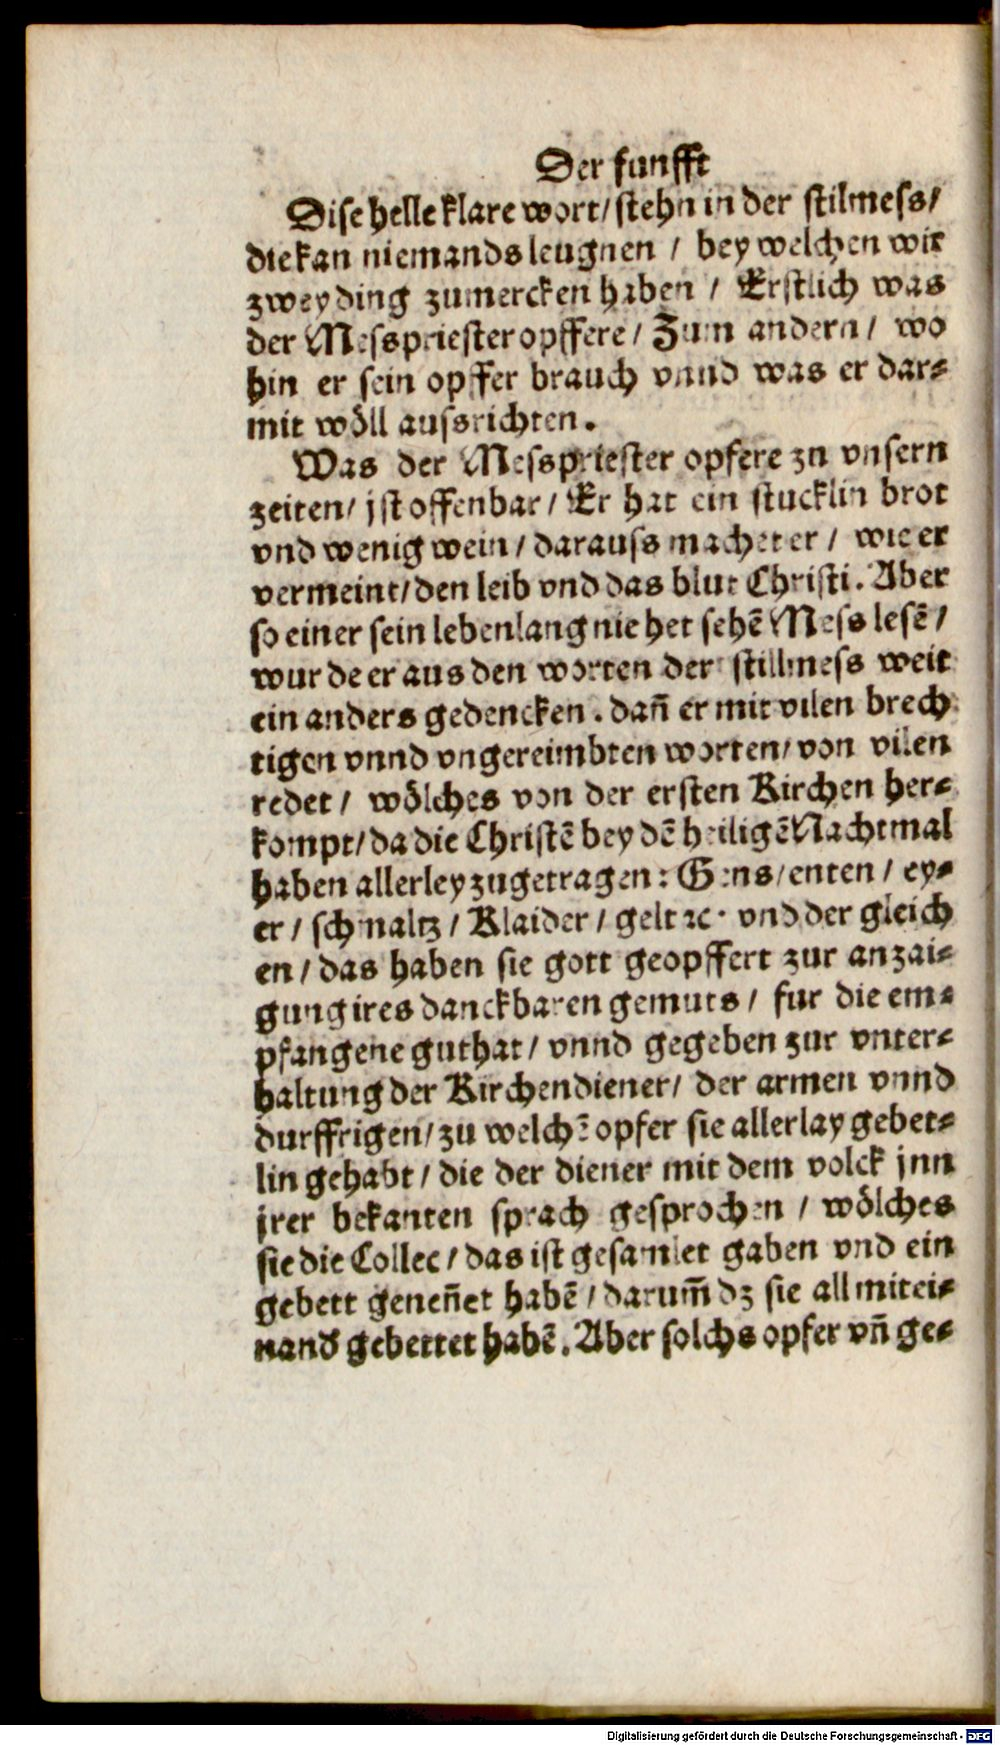 Der funfft
Dise helle klare wort/ stehn in der stilmess/
die kan niemands leugnen / bey welchen wir
zwey ding zumercken haben / Erstlich was
der Messpriester opffere / Zum andern / wo
hin er sein opffer brauch vnnd was er dar⸗
mit wöll aussrichten.
Was der Messpriester opfere zu vnsern
zeiten/ jst offenbar / Er hat ein stucklin brot
vnd wenig wein / darauss machet er / wie er
vermeint/ den leib vnd das blut Christi. Aber
so einer sein lebenlang nie het sehẽ Mess lesẽ /
wurde er aus den worten der stillmess weit
ein anders gedencken . dañ er mit vilen brech
tigen vnnd vngereimbten worten/ von vilen
redet / wölches von der ersten Kirchen her⸗
kompt/ da die Christẽ bey dẽ heiligẽ Nachtmal
haben allerley zugetragen : Gens/ enten / ey⸗
er / schmaltz / Klaider / gelt ꝛc. vnd der gleich
en / das haben sie gott geopffert zur anzai⸗
gung ires danckbaren gemuts / fur die em⸗
pfangene guthat / vnnd gegeben zur vnter⸗
haltung der Kirchendiener/ der armen vnnd
durfftigen/ zu welchẽ opfer sie allerlay gebet⸗
lin gehabt / die der diener mit dem volck jnn
jrer bekanten sprach gesprochen / wölches
sie die Collec / das ist gesamlet gaben vnd ein
gebett geneñet habẽ / darum̃ dz sie all mitei⸗
nand' gebettet habẽ. Aber solchs opfer vñ ge⸗
Digitalisierung gefördert durch die Deutsche Forschungsgemeinschaft - DFG